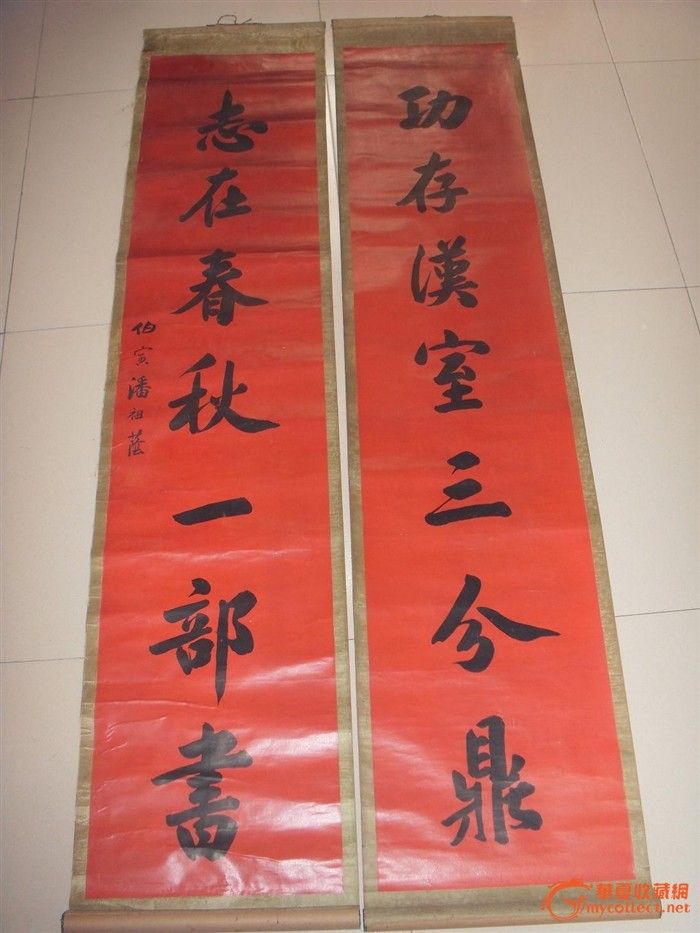 功存漢室三分鼎
志在春秋一部書
伯寅潘祖蔭
華夏收藏網
mycollect.net